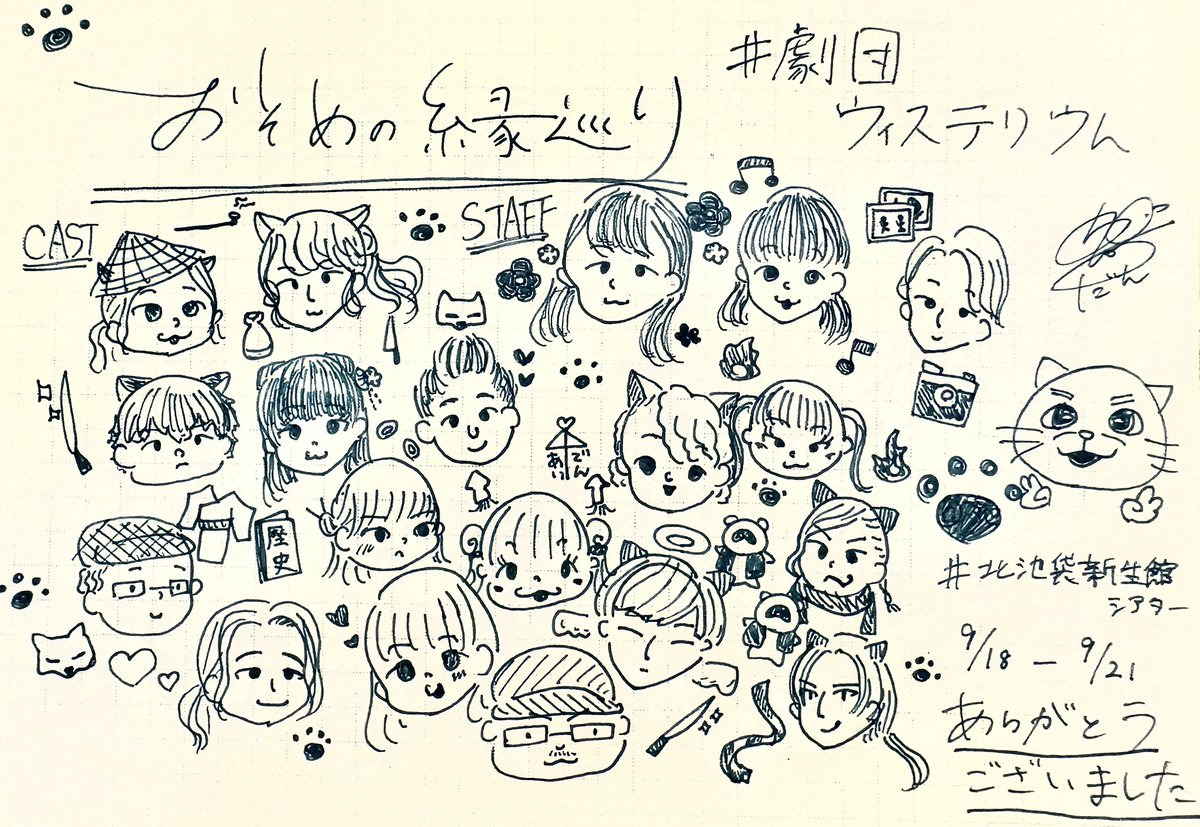 おそめの縁巡り
#劇団
ウィステリウム
CAST
STAFF
だん
あい でん
歴史
#北池袋新生館
シアター
9/18 − 9/21
ありがとう
ございました